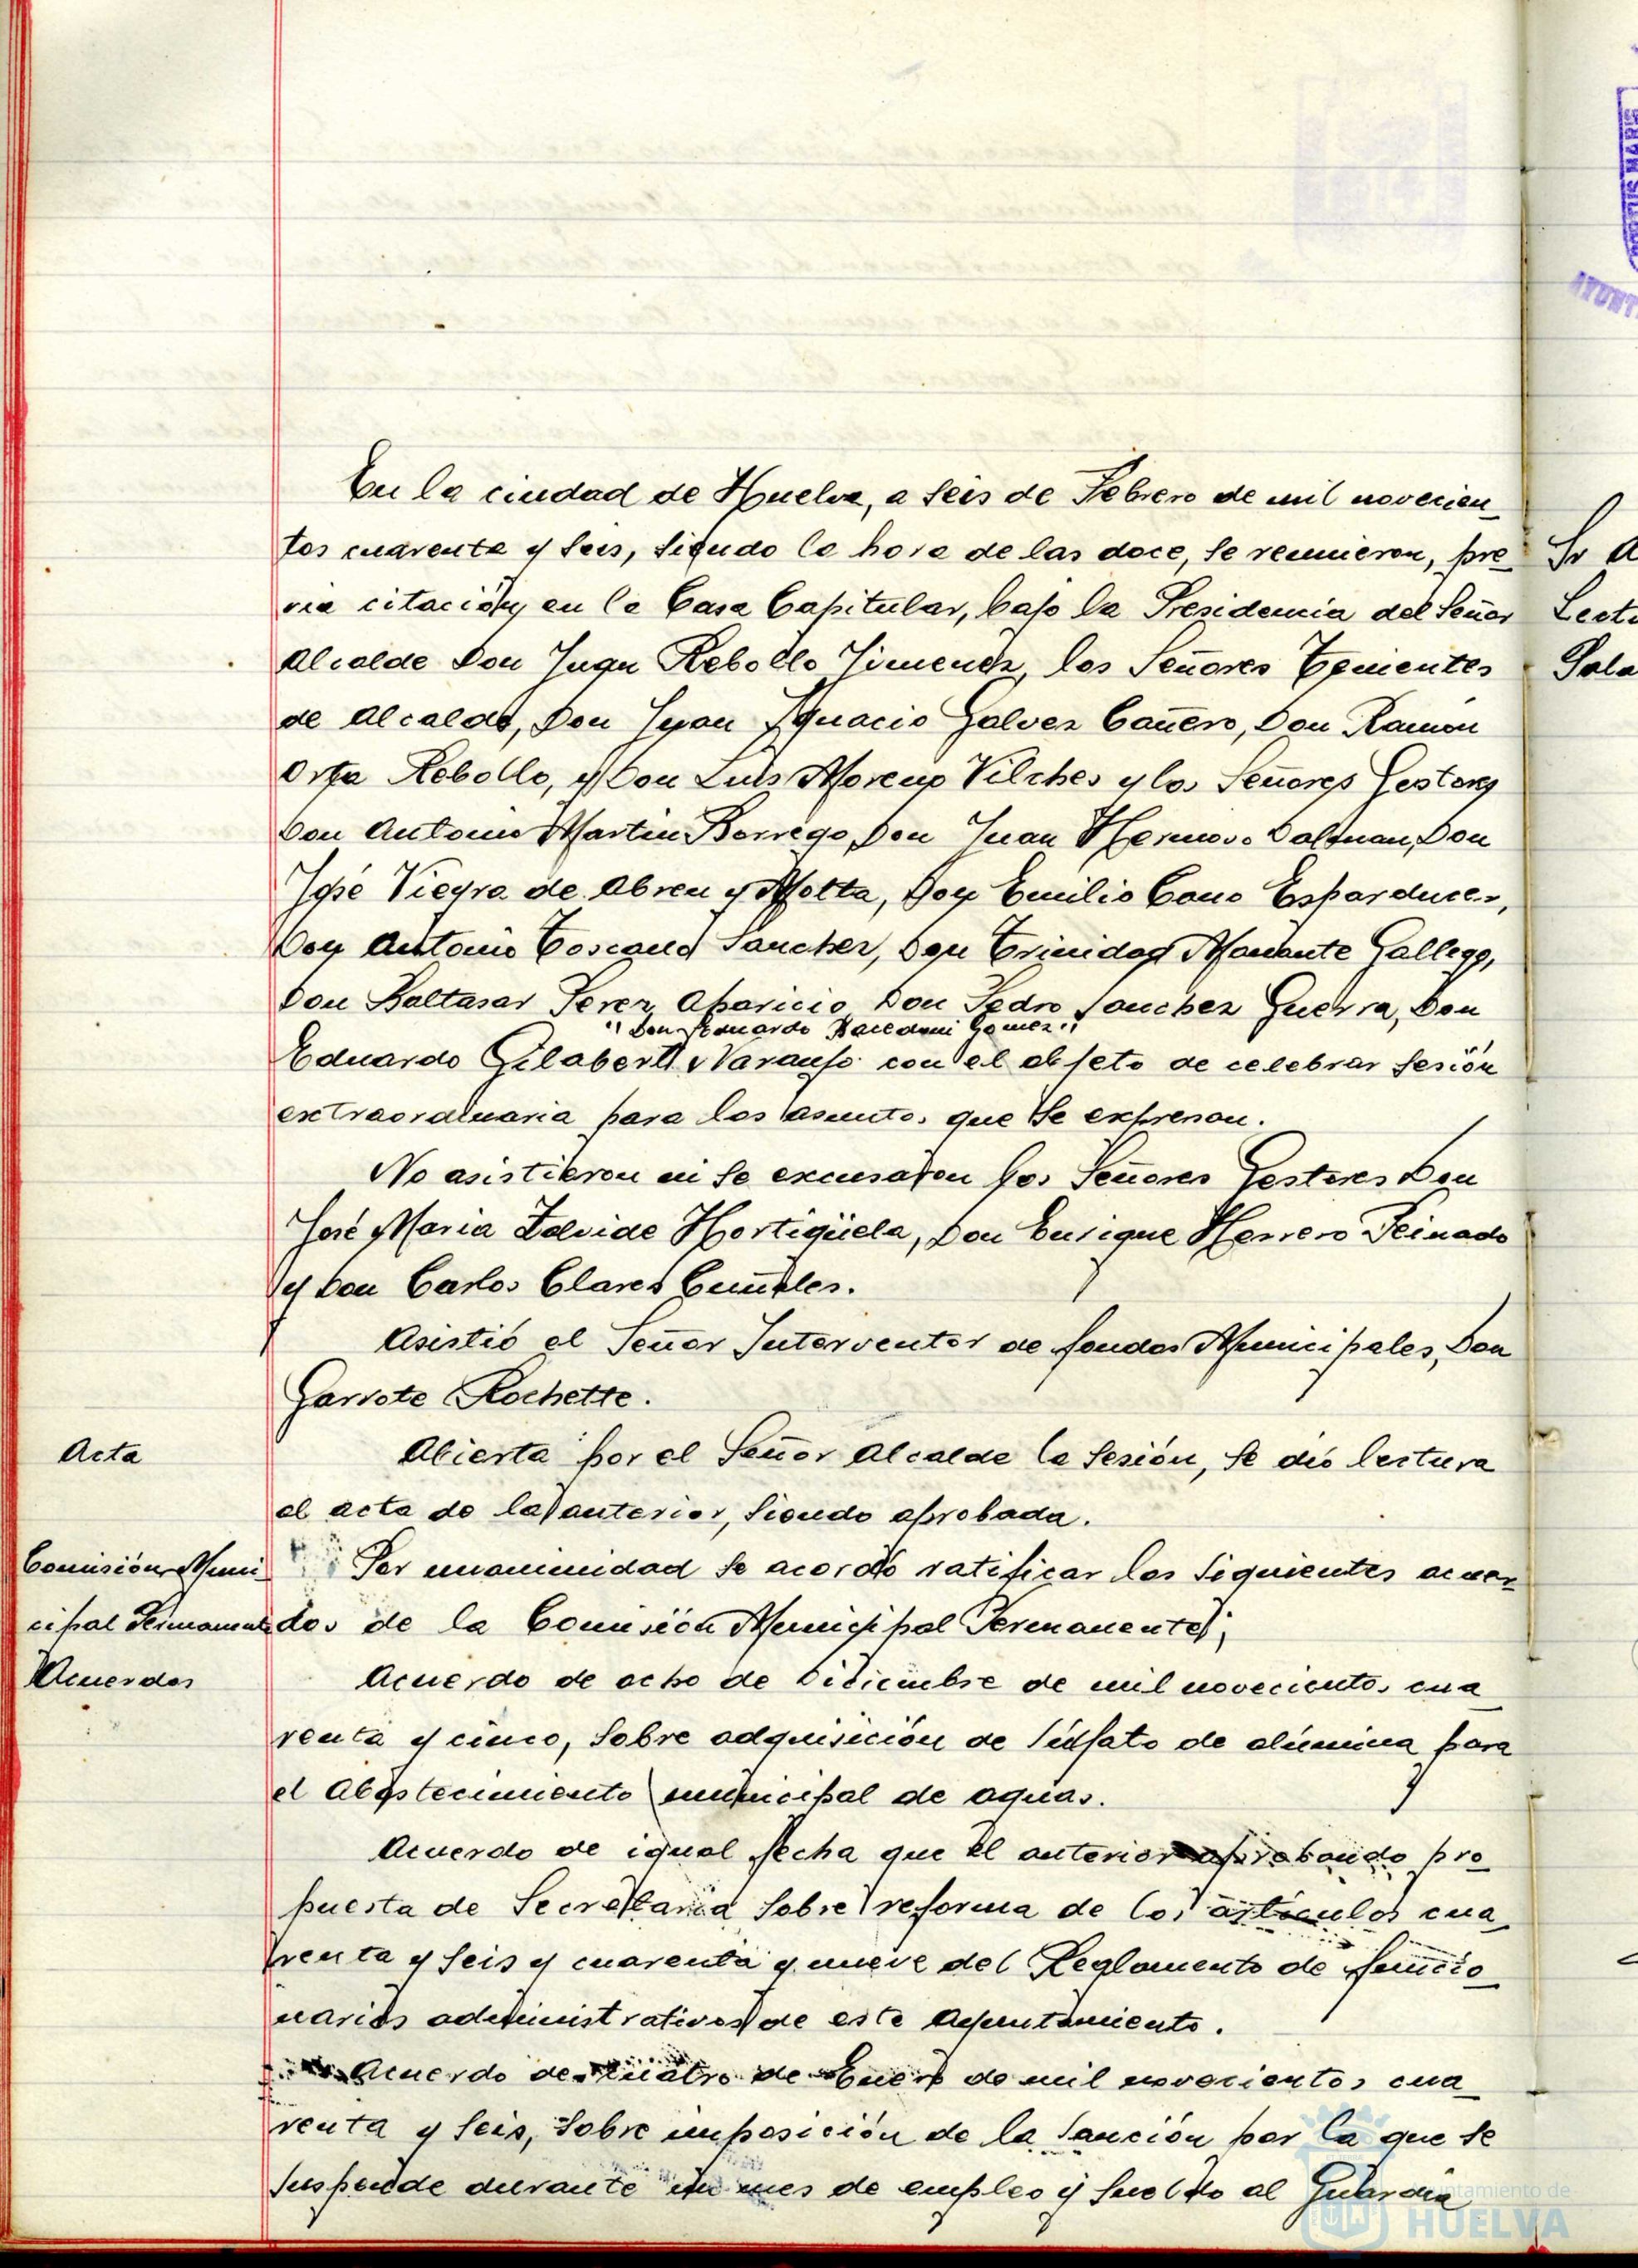 En la ciudad de Huelva, a seis de Febrero de mil novecien_
tos cuarenta y seis, siendo la hora de las doce, se reunieron, pre_
via citación, en la Casa Capitular, bajo la Presidencia del Señor
Alcalde Don Juan Rebollo Jimenez, los Señores Tenientes
de Alcalde, Don Juan Ignacio Galvez Cañero, Don Ramón
Orta Rebollo, y Don Luis Moreno Vilches y los Señores Gestores
Don Antonio Martin Borrego, Don Juan Hermoso Dalman, Don
José Vieyra de Abreu y Motta, Don Emilio Cano Esparduces,
Don Antonio Toscano Sanchez, Don Trinidad Gallego,
Don Baltasar Perez Aparicio, Don Pedro Sanchez Guerra, Don
"Don Eduardo Gomez"
Eduardo Gilabert Naranjo con el objeto de celebrar sesión
extraordinaria para los asuntos que se expresan.
No asistieron ni se excusaron los Señores Gestores Don
José Maria Zalvide Hortigüela, Don Enrique Herrero Peinado
y Don Carlos Clares
Asistió el Señor Interventor de fondos Municipales, Don
Garrote Rochette.
Acta
Abierta por el Señor Alcalde la sesión, se dió lectura
al acta de la anterior, siendo aprobada.
Comisión Muni_
cipal Permanente
Acuerdos
Por unanimidad se acordó ratificar los siguientes acuer_
dos de la Comisión Municipal Permanente;
Acuerdo de ocho de Diciembre de mil novecientos cua_
renta y cinco, sobre adquisición de súlfato de alúmina para
el Abastecimiento municipal de aguas.
Acuerdo de igual fecha que el anterior aprobando pro_
puesta de Secretaria sobre reforma de los artículos cua_
renta y seis y cuarenta y nueve del Reglamento de funcio_
narios administrativos de este Ayuntamiento.
Acuerdo de cuatro de Enero de mil novecientos cua_
renta y seis, sobre imposición de la sanción por la que se
suspende durante un mes de empleo y sueldo al Guardia
Sr A
Lect
Pala
Ayuntamiento de
HUELVA